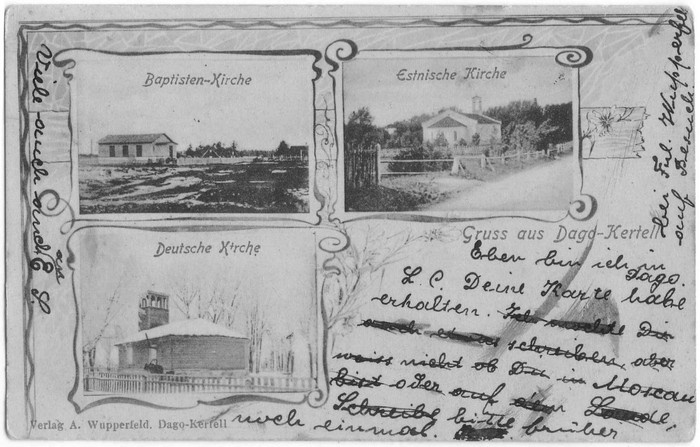 Baptisten-Kirche
Estnische Kirche
Deutsche Kirche
Gruss aus Dago-Kertell
Eben bin ich in Dago.
L. C. Deine Karte habe
erhalten. Ich möchte Dir
auch etwas schreiben, aber
weiss nicht ob Du in Moscau
bist oder auf dem Lande,
Schreibe bitte
noch einmal.
bei Frl. Wupperfel
auf Besuch.
Viele
Verlag A. Wupperfeld, Dago-Kertell